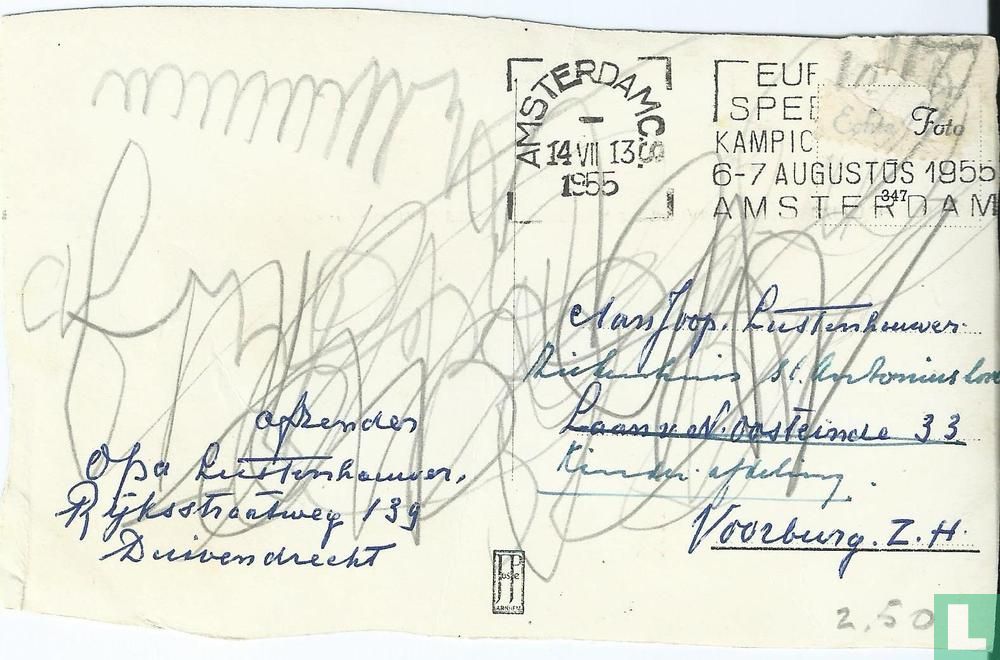 AMSTERDAM C.S.
14 VII 13
1955
EUR
SPEE
KAMPIC
6-7 AUGUSTUS 1955
AMSTERDAM
Echte Foto
347
Aan Joop. Lustenhouwer.
Ziekenhuis St. Antonius
Laan v N. Oosteinde 33
Kinder afdeling.
Voorburg. Z.H.
afzender
Opa Lustenhouwer.
Rijksstraatweg 139
Duivendrecht
JosPe
ARNHEM
2.50
L